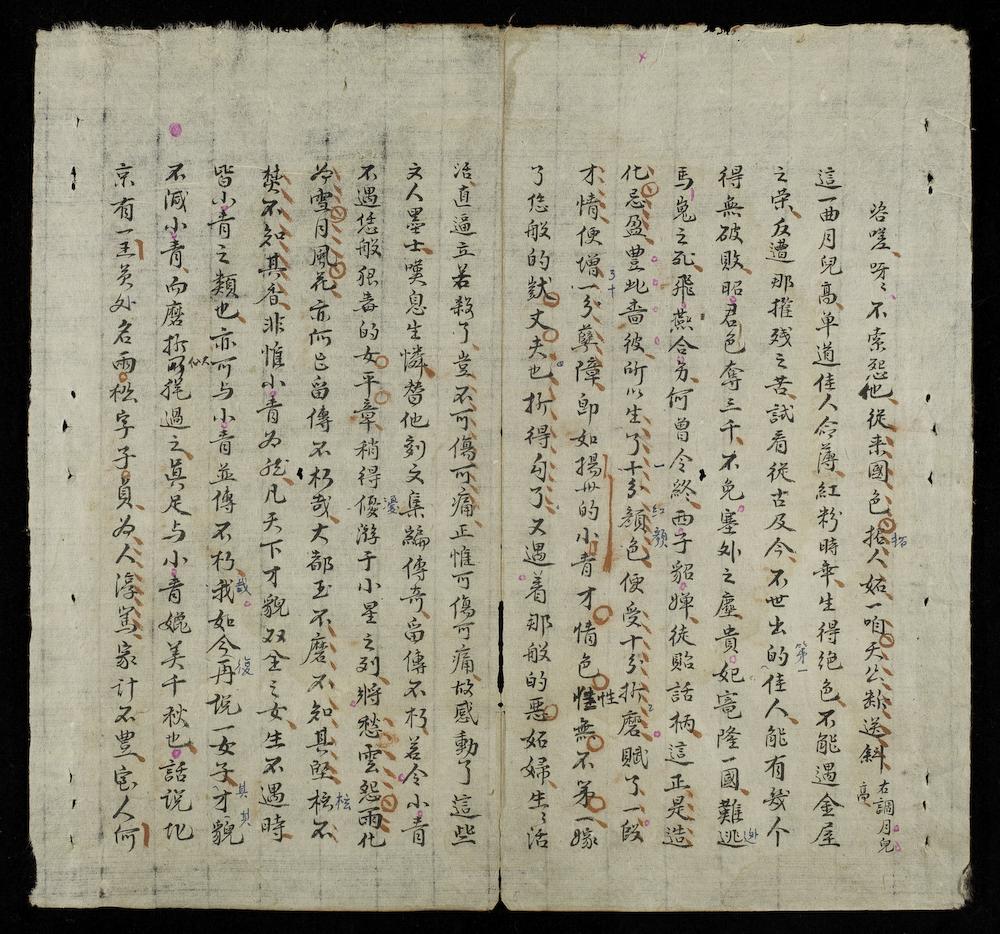 咨嗟呀〻不索怨他從来國色招人妬一咱天公断送斜 右調月兒高
這一曲月兒高单道佳人命薄紅粉時乖生得絶色不能遇金屋
之荣反遭那摧残之苦試看從古及今不世出的佳人能有幾个
得無破敗昭君色奪三千不免塞外之塵貴妃寵隆一國難逃
馬嵬之死飛燕合芳何曾令終西子貂婵徒貽話柄這正是造
化忌盈豊此啬彼所以生了十分顔色便受十分折磨賦了一段
才情便增一分孽障即如揚州的小青才情色性無不第一嫁
了恁般的獃丈夫也折得勾了又遇着那般的惡妬婦生〻活
活直逼立若殺了豈不可傷可痛正惟可傷可痛故感動了這些
文人墨士嘆息生憐替他刻文集編傳奇留傳不朽若令小青
不遇恁般狠毒的女平章稍得優游于小星之列將愁雲怨雨化
爲雪月風花亦何足留傳不朽哉大都玉不磨不知其堅檀不
焚不知其香非惟小青为然凡天下才貌双全之女生不遇時
皆小青之類也亦可与小青並傳不朽我如今再说一女子才貌
不减小青而磨折猶過之真足与小青媲美千秋也話说北
京有一王员外名雨松字子貞为人淳篤家計不豊宦人何